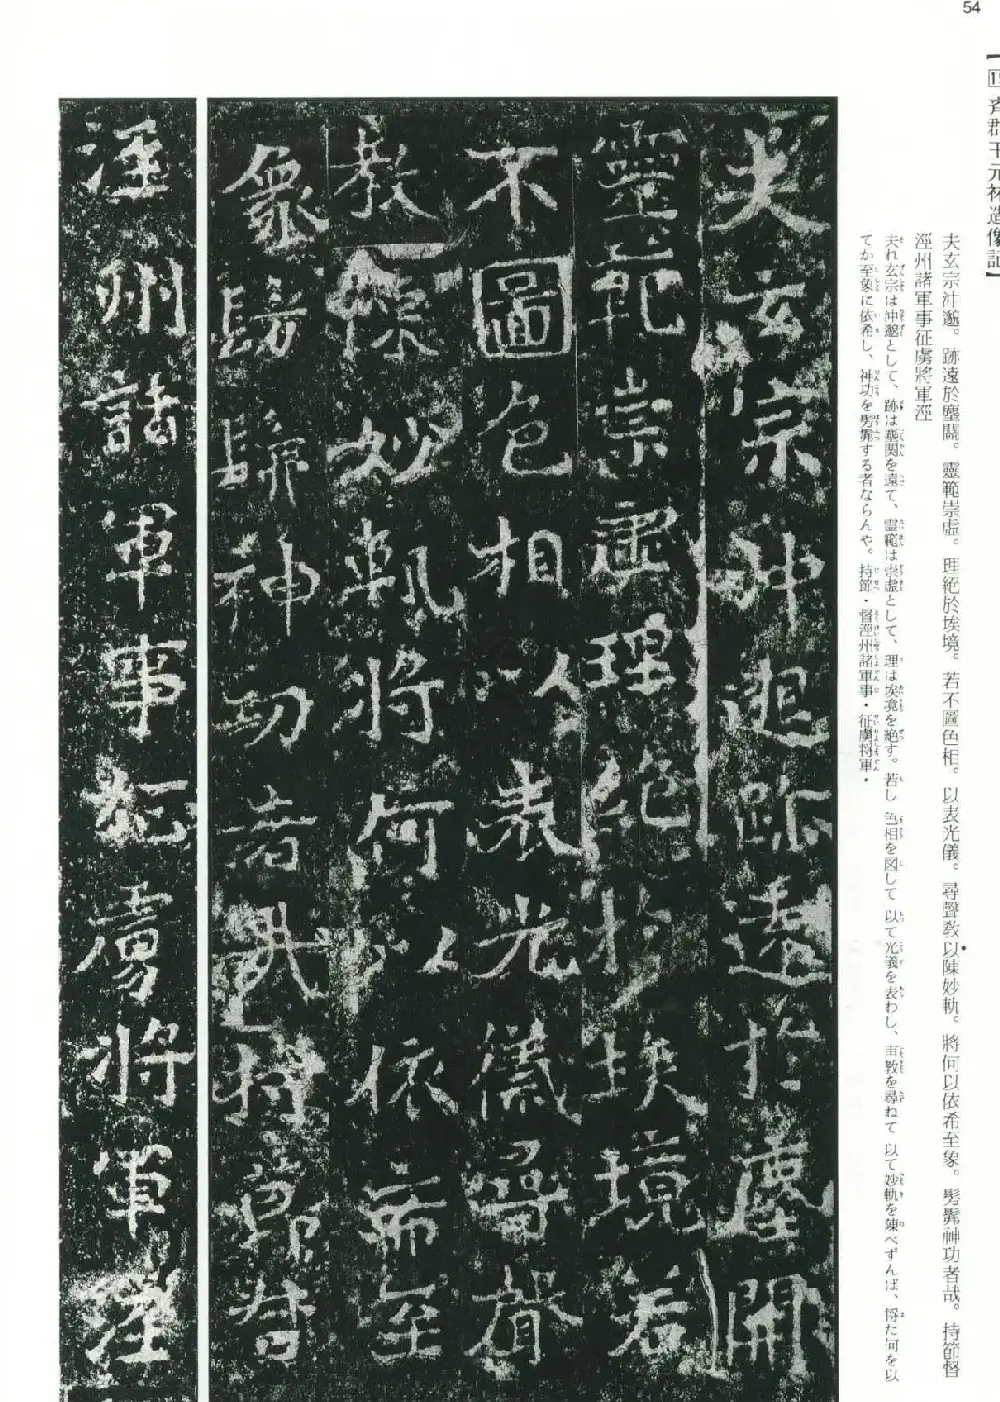 54
齊郡王元祐造像記】
夫玄宗沖邈。跡遠於塵關。靈範崇虛。理絕於埃境。若不圖色相。以表光儀。尋聲敎以陳妙軌。將何以依希至象。髣髴神功者哉。持節督
涇州諸軍事征虜將軍涇
夫れ玄宗は沖邈として、跡は塵関を遠て、霊範は崇虚として、理は埃境を絶す。若し色相を図して以て光儀を表わし、声教を尋ねて以て妙軌を陳べずんば、将た何を以
てか至象に依希し、神功を髣髴する者ならんや。持節・督涇州諸軍事・征虜将軍・
夫玄宗沖邈跡遠於塵開
靈範崇虛理絕於埃境若
不圖色相以表光儀尋聲
教陳妙軌將何以依希至
象髣髴神功者哉持節督
涇州諸軍事征虜將軍涇